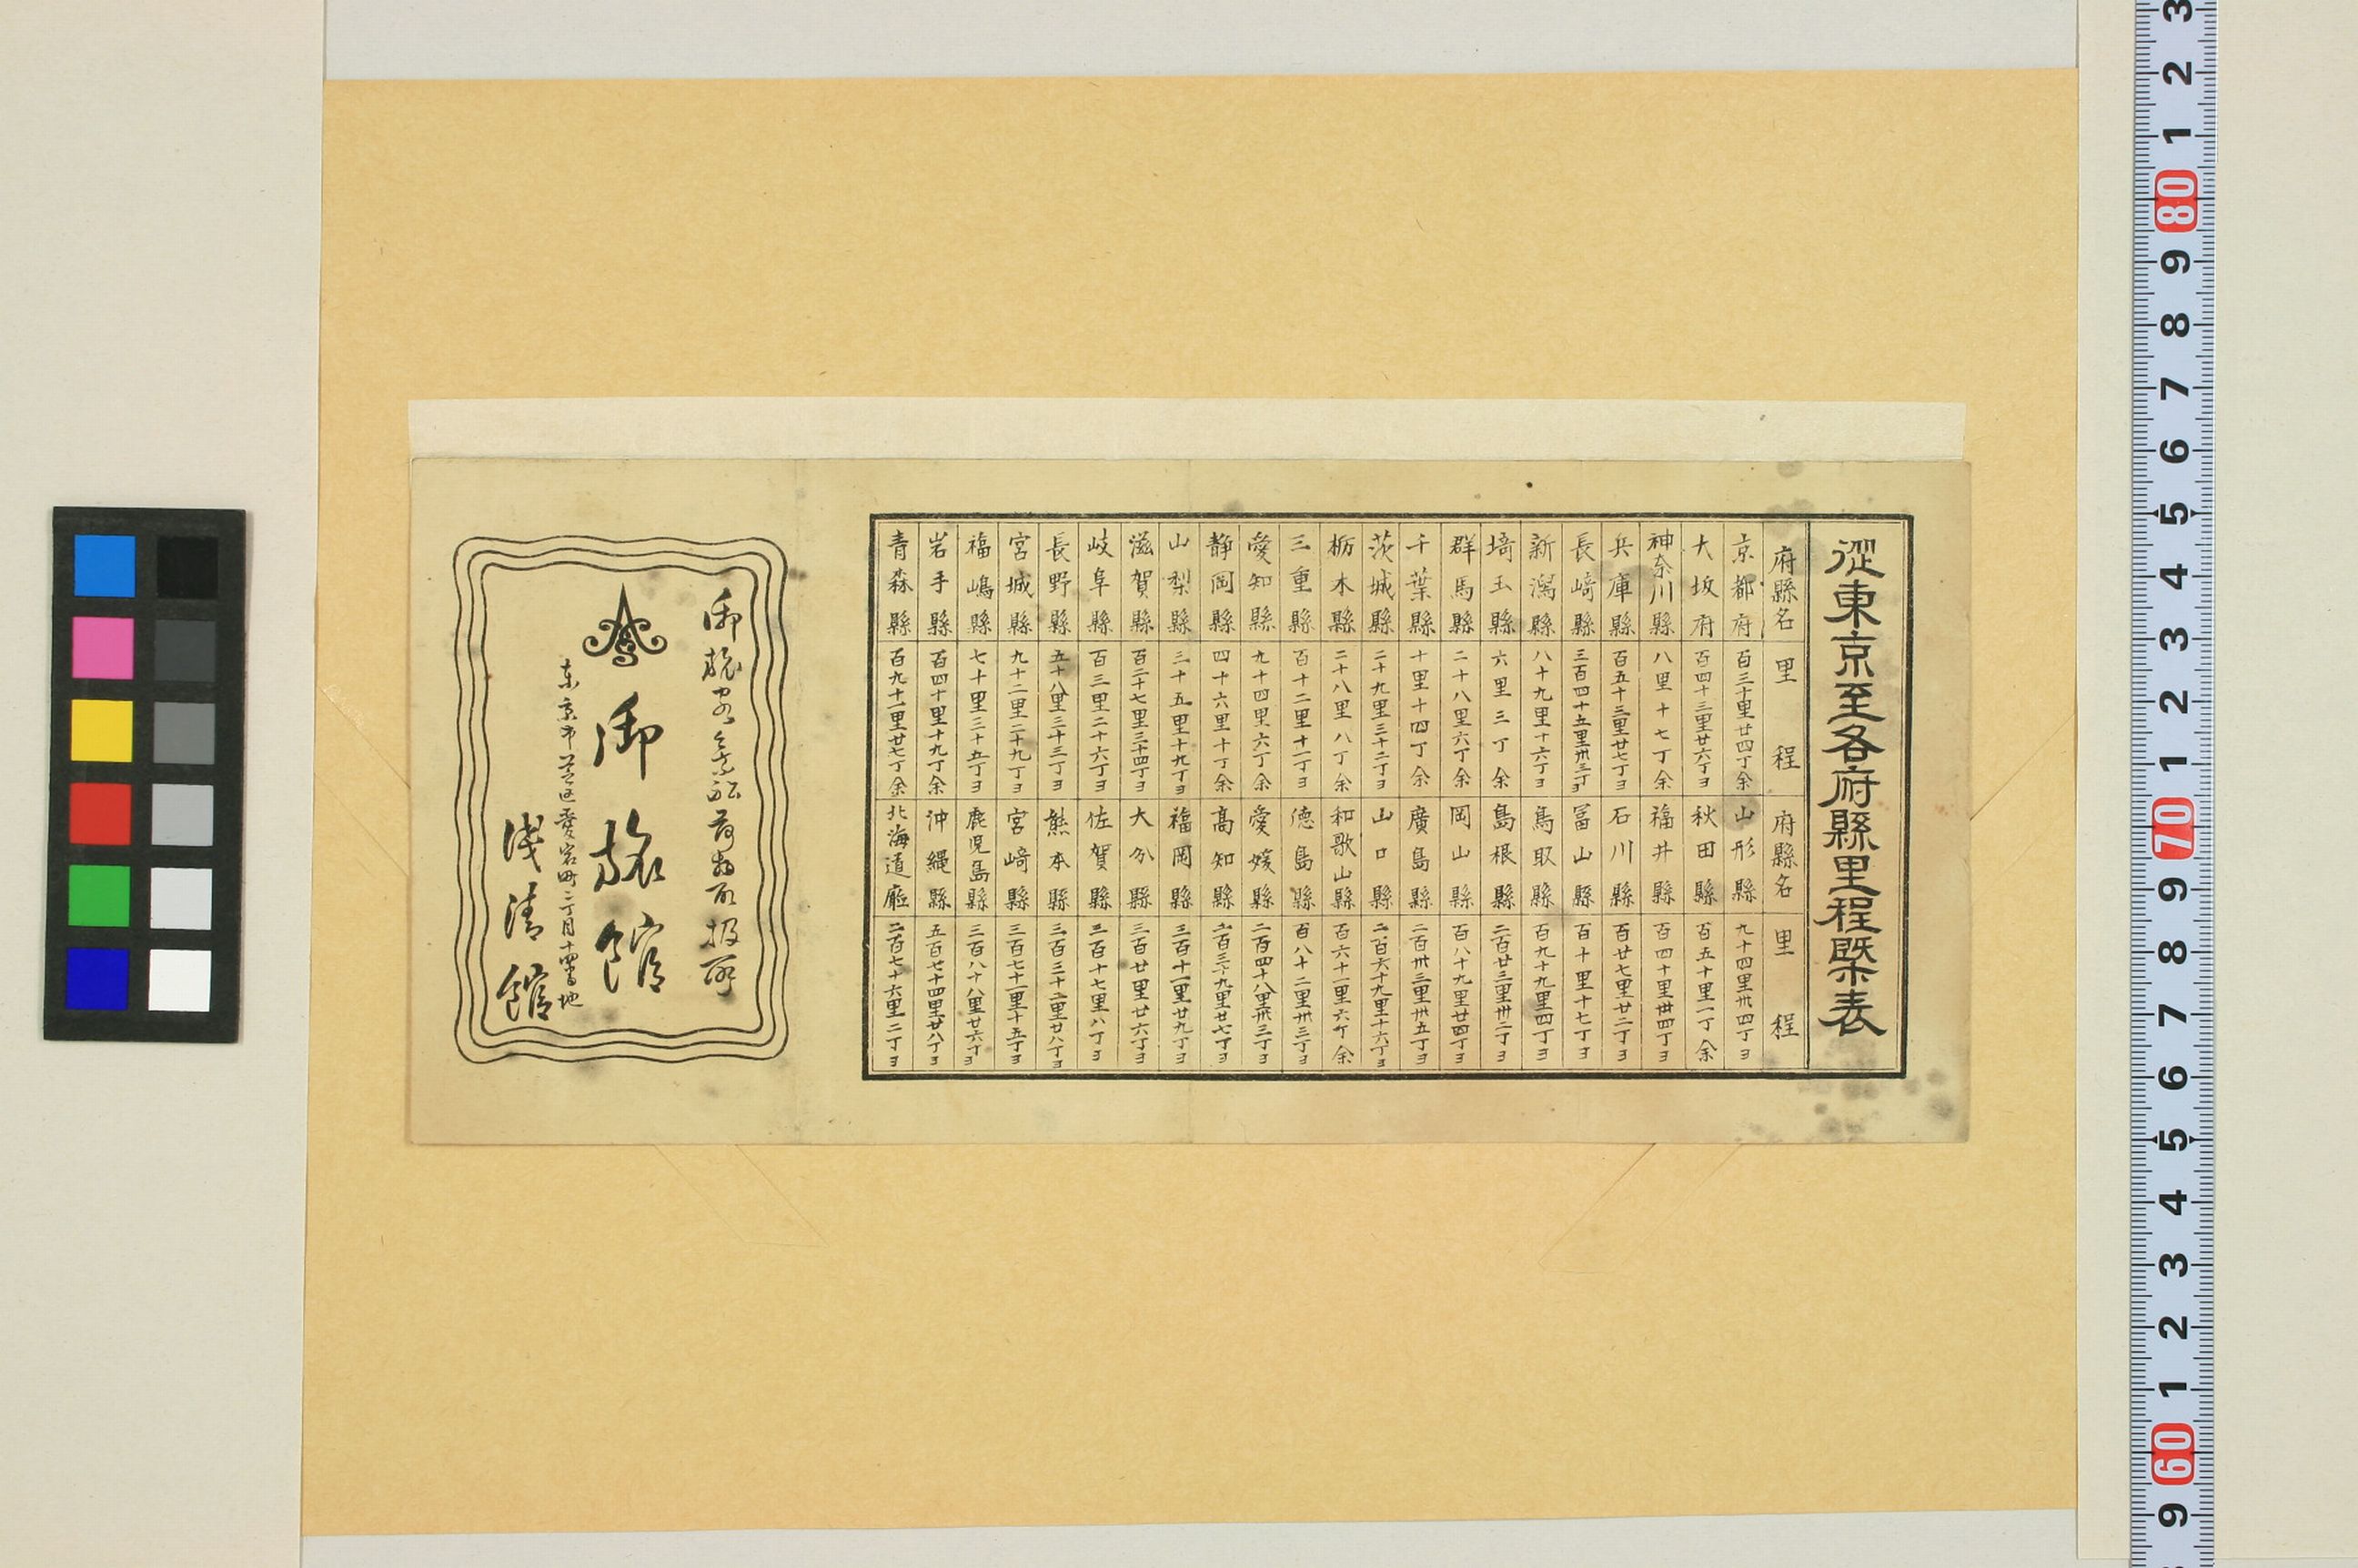 從東京至各府縣里程㮣表
府縣名 里程 府縣名 里程
京都府 百三十里廿四丁余 山形縣 九十四里卅四丁ヨ
大坂府 百四十三里廿六丁ヨ 秋田縣 百五十里一丁余
神奈川縣 八里十七丁余 福井縣 百四十里卅四丁ヨ
兵庫縣 百五十三里廿七丁ヨ 石川縣 百廿七里廿二丁ヨ
長﨑縣 三百四十五里卅三丁ヨ 冨山縣 百十里十七丁ヨ
新潟縣 八十九里十六丁ヨ 鳥取縣 百九十九里四丁ヨ
埼玉縣 六里三丁余 島根縣 二百廿三里卅二丁ヨ
群馬縣 二十八里六丁余 岡山縣 百八十九里廿四丁ヨ
千葉縣 十里十四丁余 廣島縣 二百卅三里卅五丁ヨ
茨城縣 二十九里三十二丁ヨ 山口縣 二百六十九里十六丁ヨ
栃木縣 二十八里八丁余 和歌山縣 百六十一里六丁余
三重縣 百十二里十一丁ヨ 徳島縣 百八十二里卅三丁ヨ
愛知縣 九十四里六丁余 愛媛縣 二百四十八里卅三丁ヨ
静岡縣 四十六里十丁余 髙知縣 二百三十九里廿七丁ヨ
山梨縣 三十五里十九丁ヨ 福岡縣 三百十一里廿九丁ヨ
滋賀縣 百二十七里三十四丁ヨ 大分縣 三百廿里廿六丁ヨ
岐阜縣 百三里二十六丁ヨ 佐賀縣 三百十七里八丁ヨ
長野縣 五十八里三十三丁ヨ 熊本縣 三百三十二里廿八丁ヨ
宮城縣 九十二里二十九丁ヨ 宮﨑縣 三百七十一里十五丁ヨ
福嶋縣 七十里三十五丁ヨ 鹿児島縣 三百八十八里廿六丁ヨ
岩手縣 百四十里十九丁余 沖縄縣 五百七十四里廿八丁ヨ
青森縣 百九十一里廿七丁余 北海道廰 二百七十六里二丁ヨ
御旅館
東京市芝区愛宕町二丁目十四番地
浅清館
3 2 1 80 9 8 7 6 5 4 3 2 1 70 9 8 7 6 5 4 3 2 1 60 9